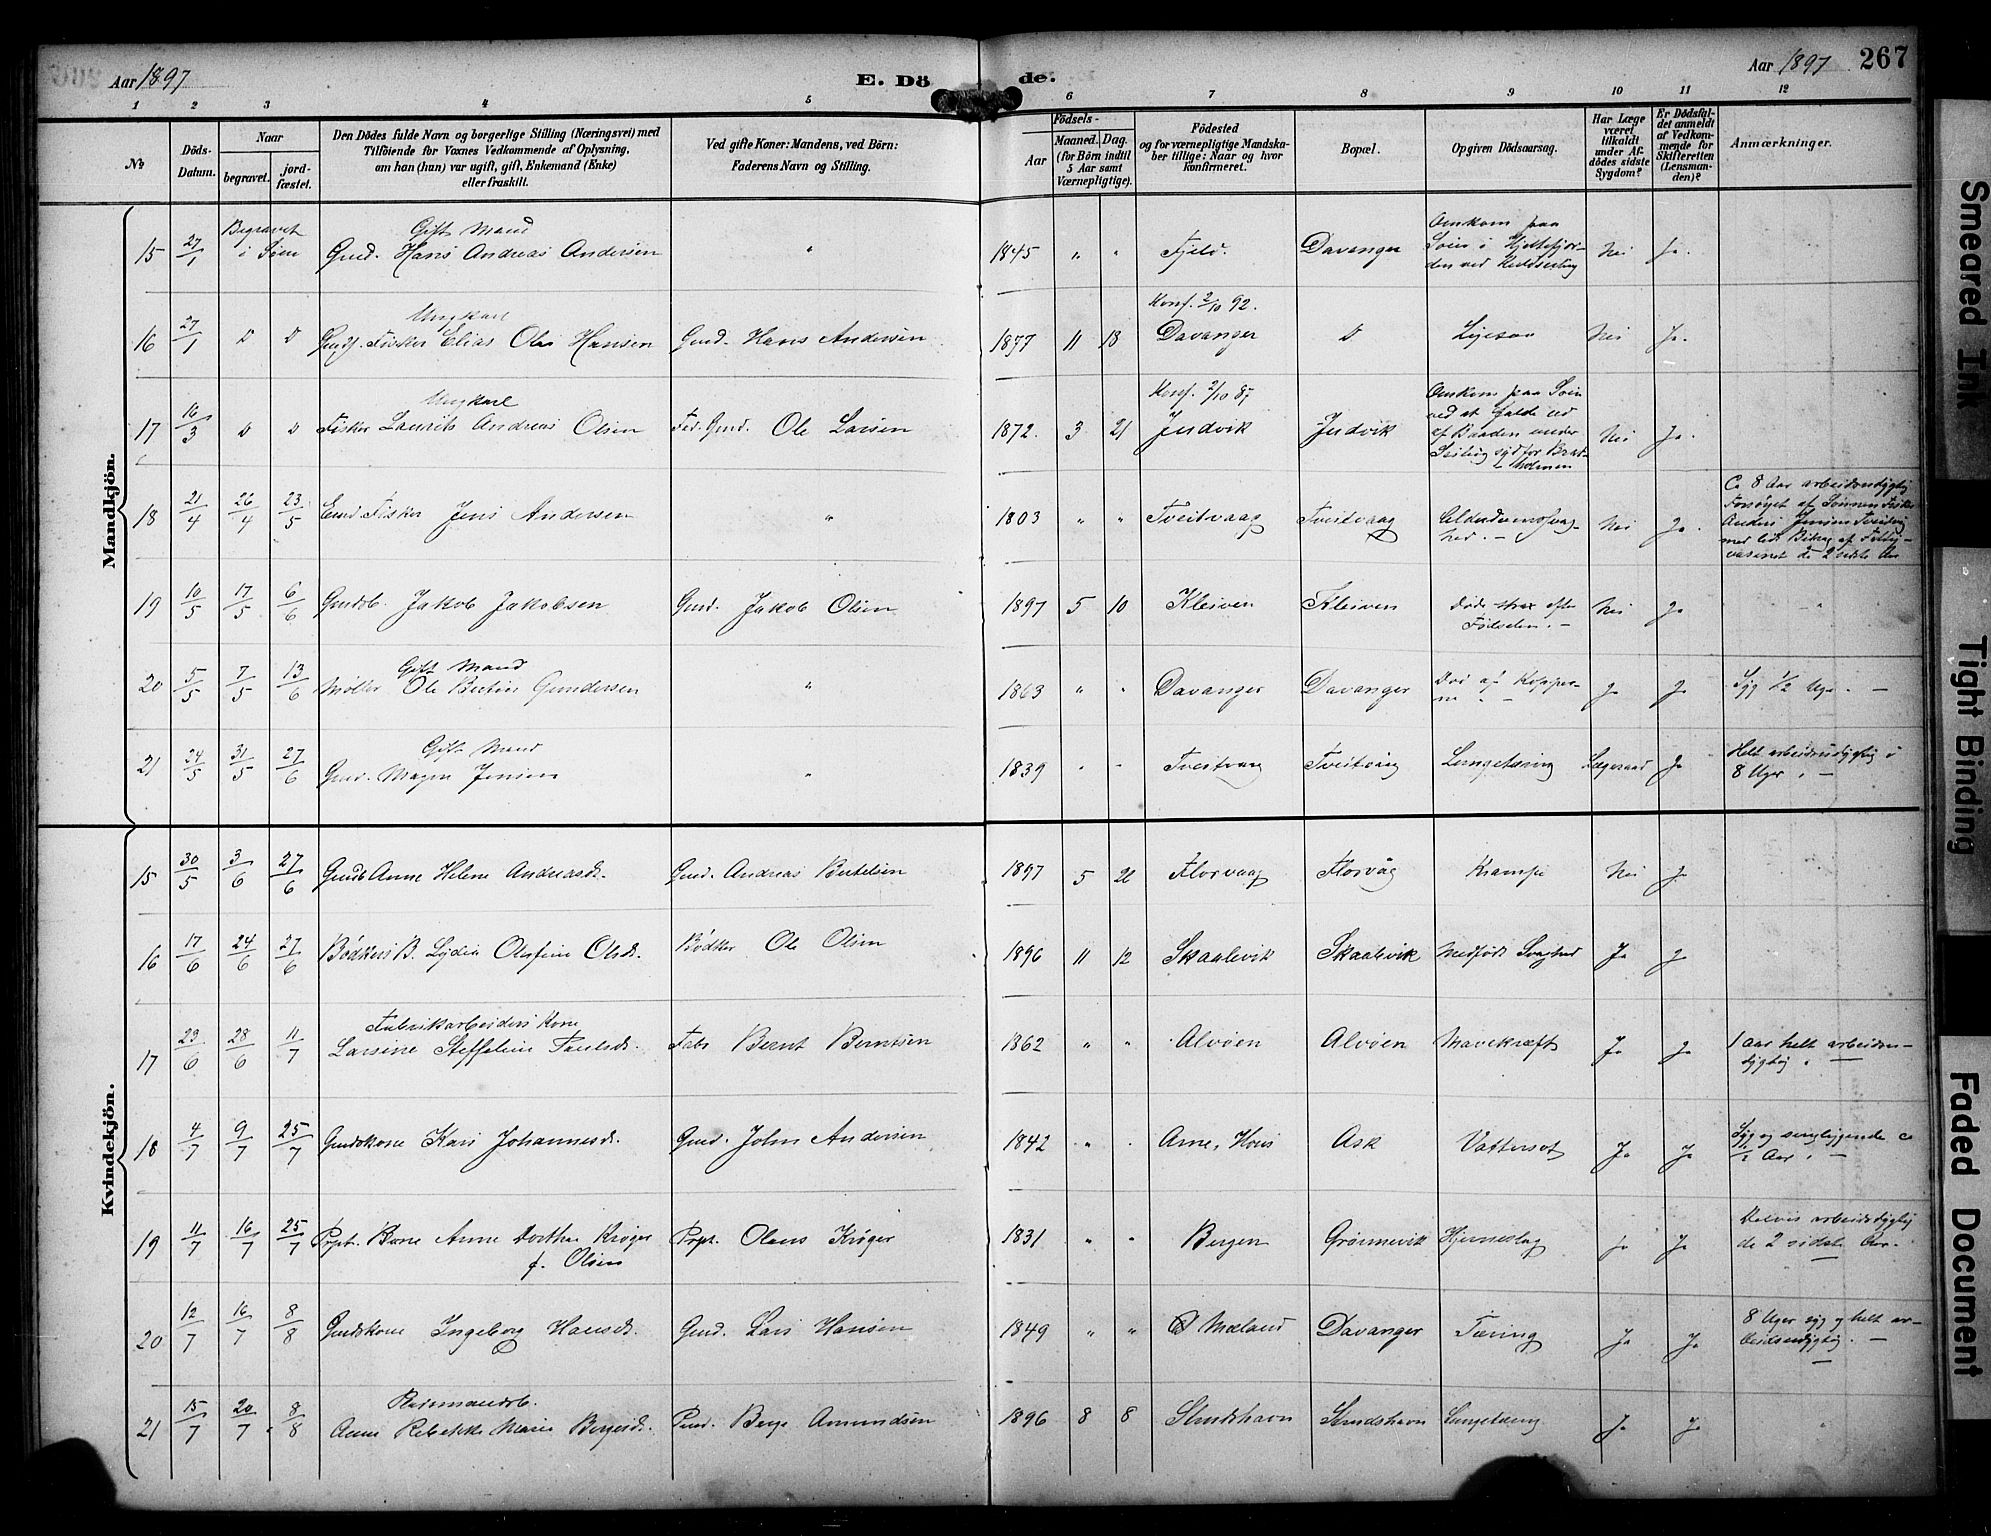 Aar 1897
E. Döde.
Aar 1897 267
1 2 3 4 5 6 7 8 9 10 11 12
№
Döds-Datum.
Naar
begravet.
jord-fæstet.
Den Dödes fulde Navn og borgerlige Stilling (Næringsvei) med
Tilföiende for Voxnes Vedkommende af Oplysning,
om han (hun) var ugift, gift, Enkemand (Enke)
eller fraskilt.
Ved gifte Koner: Mandens, ved Börn:
Faderens Navn og Stilling.
Födsels-
Aar
Maaned. Dag.
(for Börn indtil
5 Aar samt
Værnepligtige).
Födested
og for værnepligtige Mandska-
ber tillige: Naar og hvor
konfirmeret.
Bopæl.
Opgiven Dödsaarsag.
Har Læge
været
tilkaldt
under Af-
dödes sidste
Sygdom?
Er Dödsfal-
det anmeldt
af Vedkom-
mende for
Skifteretten
(Lensman-
den)?
Anmærkninger.
Mandkjön.
15 27/1 Begravet i Søen Gift Mand Gmd. Hans Andreas Andersen " 1845 " " Fjeld. Davanger Omkom paa Søen i Hjeltefjor-den ved Nei Ja.
16 27/1 D D Ungkarl Fisker Elias Olai Hansen Gmd. Hans Andersen 1877 11 18 Konf. 2/10 92. Davanger D Ligesaa Nei Ja.
17 16/3 D D Ungkarl Fisker Laurits Andreas Olsen Gmd. Ole Larsen 1872. 3 21 Konf. 2/10 87 Indvik Indvik Omkom paa Søen ved at falde ud af Baaden under Seiling syd for Nei Ja.
18 21/4 26/4 23/5 Fisker Jens Andersen " 1803 " " Tveitvaag Tveitvaag Nei Ja. Ca 8 Aar arbeidsudygtig Forsøget af Sønnen Fisker Anders Jensen med lidt Bidrag af de 2 sidste Aar
19 10/5 17/5 6/6 Gmdsb. Jakob Jakobsen Gmd. Jakob Olsen 1897 5 10 Kleiven Kleiven Døde strax efter Fødselen. – Nei Ja "
20 5/5 7/5 13/6 Gift Mand Møller Ole Bertin Gundersen " 1863 " " Davanger Davanger Død af Kopper-ne – Ja Ja Syg 1/2 Uge. –
21 24/5 31/5 27/6 Gift Mand Gmd. Mogen Jensen " 1839 " " Tveitvaag Tveitvaag Lungetæring Ja Helt arbeidsudygtig i 8 Uger. –
Kvindekjön.
15 30/5 3/6 27/6 Gmdb Anne Helene Andreasd. Gmd. Andreas Bertelsen 1897 5 22 Florvaag Florvåg Krampe Nei Ja
16 17/6 24/6 27/6 Bødkers B. Lydia Olefine Olsd. Bødker Ole Olsen 1896 11 12 Skaalevik Skaalevik Medfødt Svaghed Ja Ja
17 23/6 28/6 11/7 Fabrikarbeiders Kone Larsine Steffeline Paulsd. Fabr Bernt Berntsen 1862 " " Alvøen Alvøen Mavekræft Ja Ja 1 Aar helt arbeidsu-dygtig. –
18 4/7 9/7 25/7 Gmdskone Kari Johannesd. Gmd. John Andersen 1842 " " Arne, Hous Ask Vattersot Ja Ja Syg og sengliggende ca 1/2 Aar. –
19 11/7 16/7 25/7 Prpt. Kone Anne Dorthea Krøger f. Olsen Prpt. Olaus Krøger 1831 " " Bergen Grønnevik Hjerneslag Ja Ja Delvis arbeidsdygtig de 2 sidste Aar.
20 12/7 16/7 8/8 Gmdskone Ingeborg Hansd. Gmd. Lars Hansen 1849 " " Ø Mæland Davanger Tæring Ja Ja 8 Uger syg og helt ar-beidsudygtig. –
21 15/7 20/7 8/8 Anne Rebekka Marie Bergesd. Berge Amundsen 1896 8 8 Strudshavn Strudshavn Lungetæring Ja Ja "
Smeared Ink
Tight Binding
Faded Document